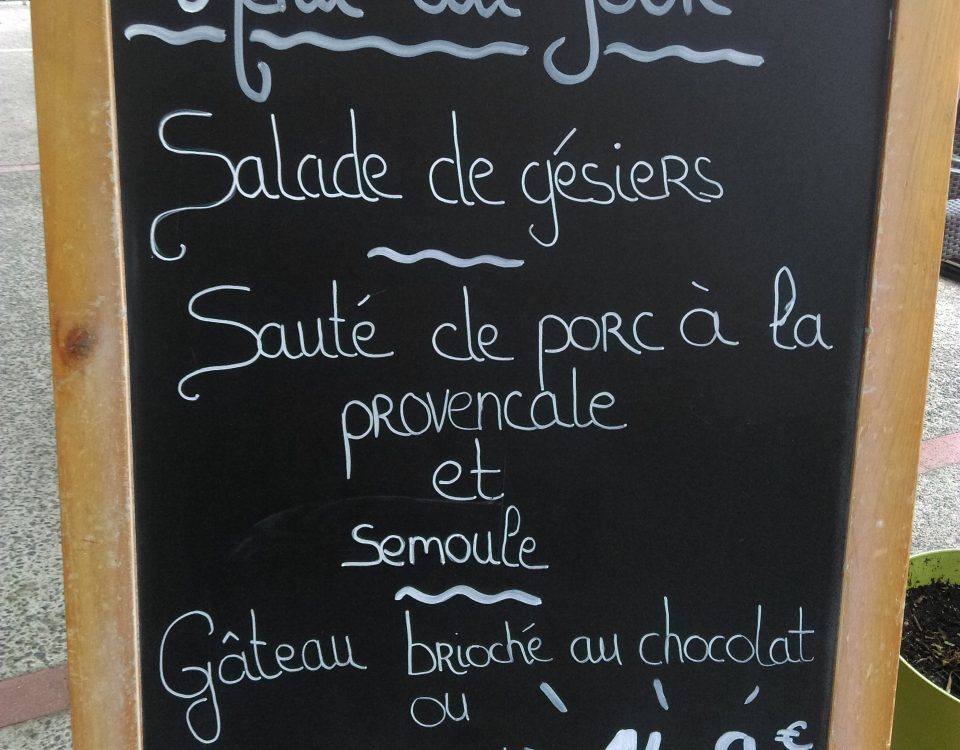 Menu du jour
Salade de gésiers
Sauté de porc à la
provencale
et
semoule
Gâteau brioché au chocolat
ou
€